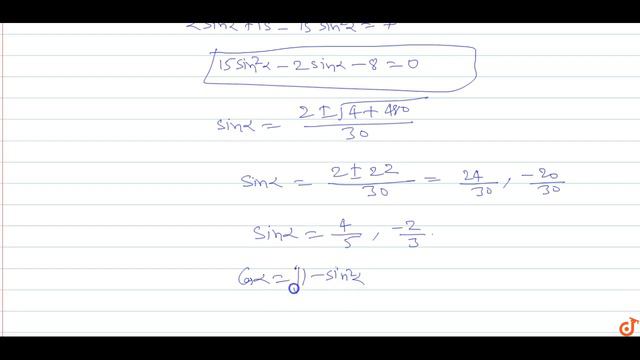 2 sinα + 15 - 15 sin²α = 7
15 sin²α - 2 sinα - 8 = 0
sinα = 2 ± √4 + 480 / 30
sinα = 2 ± 22 / 30 = 24 / 30 , -20 / 30
sinα = 4 / 5 , -2 / 3 .
Cosα = √1 - sin²α
doubtnut